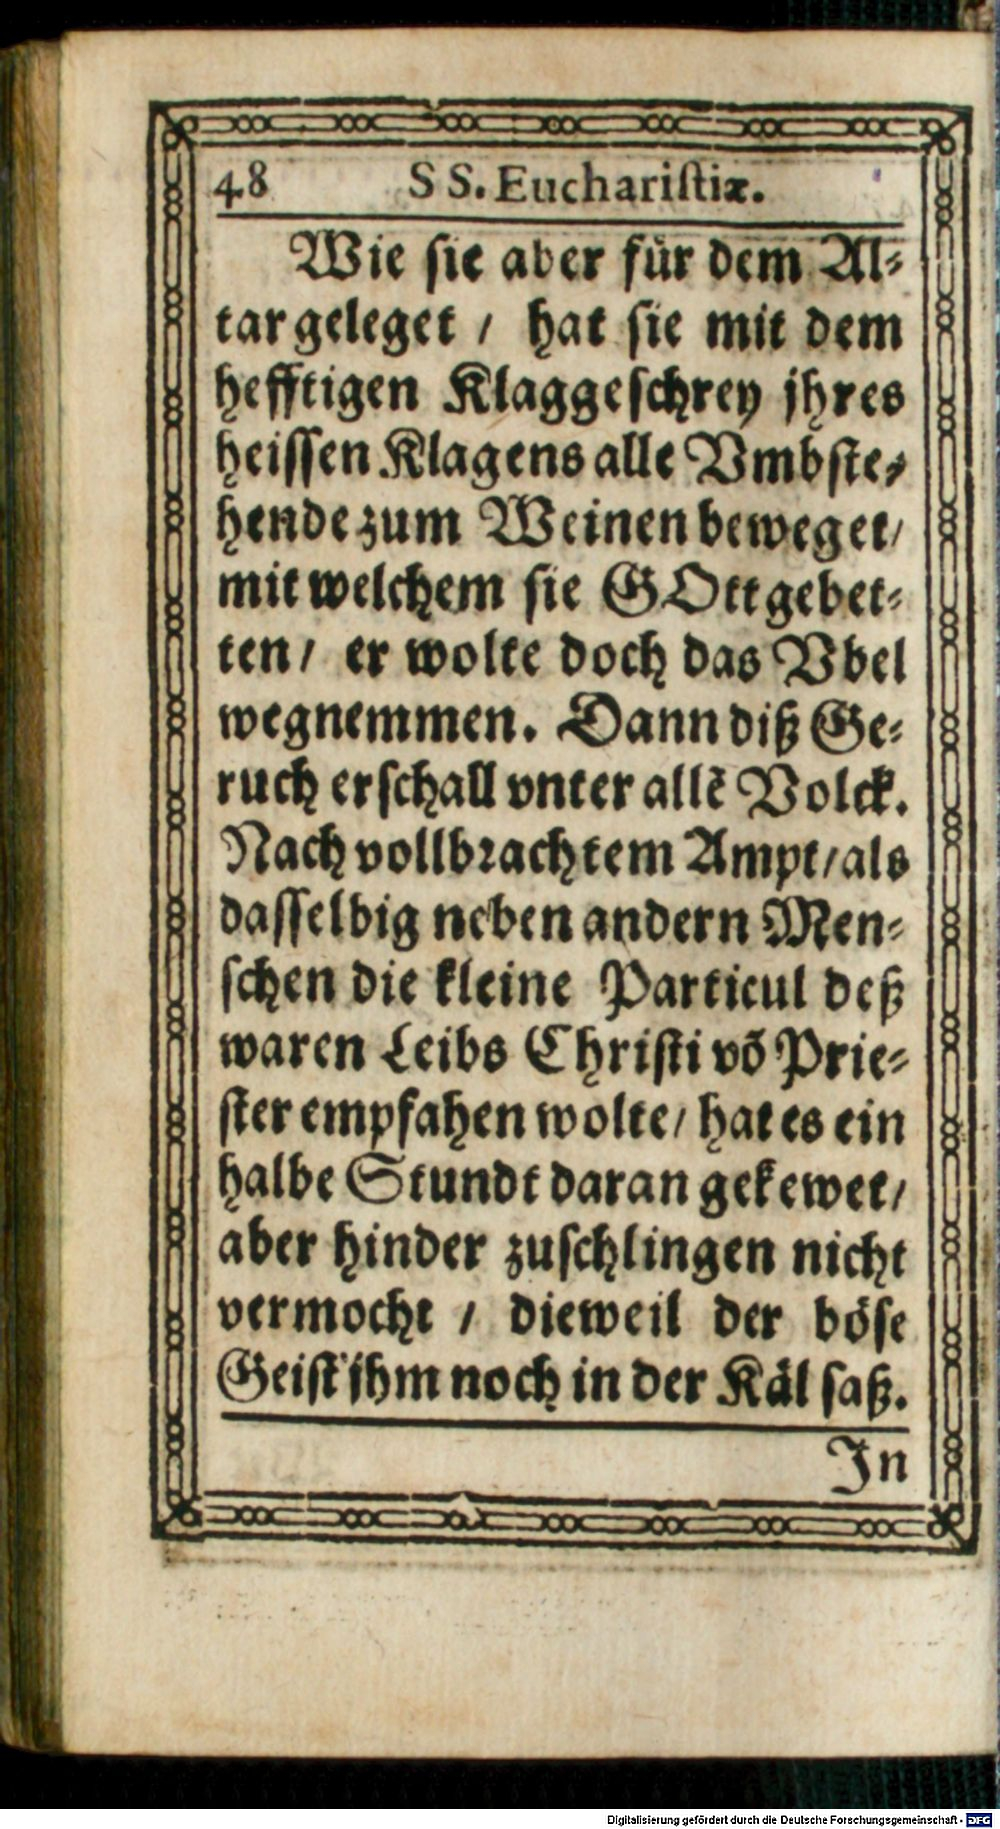 48 SS. Euchariſtiæ.
Wie ſie aber für dem Al⸗
tar geleget / hat ſie mit dem
hefftigen Klaggeſchrey jhres
heiſſen Klagens alle Vmbſte⸗
hende zum Weinen beweget /
mit welchem ſie GOtt gebet⸗
ten / er wolte doch das Vbel
wegnemmen. Dann diß Ge⸗
ruch erſchall vnter allẽ Volck.
Nach vollbrachtem Ampt / als
daſſelbig neben andern Men⸗
ſchen die kleine Particul deß
waren Leibs Chriſti võ Prie⸗
ſter empfahen wolte / hat es ein
halbe Stundt daran gekewet /
aber hinder zuſchlingen nicht
vermocht / dieweil der böſe
Geiſt jhm noch in der Käl ſaß.
In
Digitalisierung gefördert durch die Deutsche Forschungsgemeinschaft - DFG